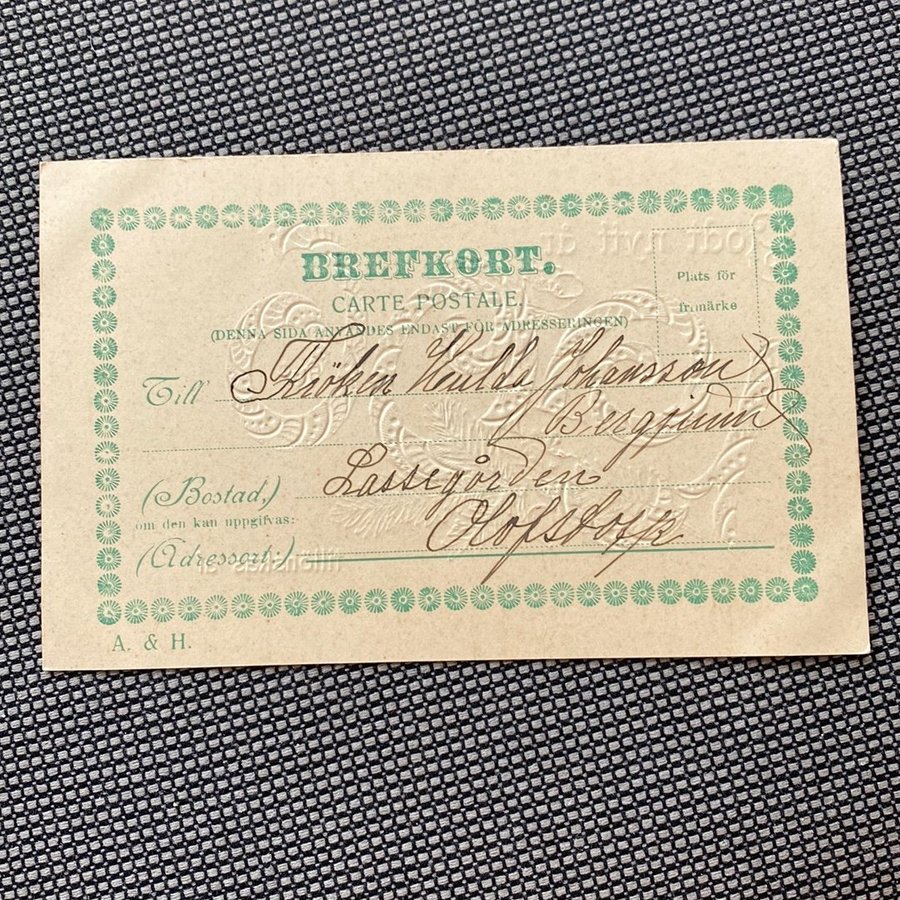 BREFKORT.
CARTE POSTALE.
(DENNA SIDA ANVÄNDES ENDAST FÖR ADRESSERINGEN)
Plats för
frimärke
Till Fröken Hulda Johansson
Bergsjum
(Bostad,) Lassegården
om den kan uppgifvas:
(Adressort,) Olofstorp
A. & H.